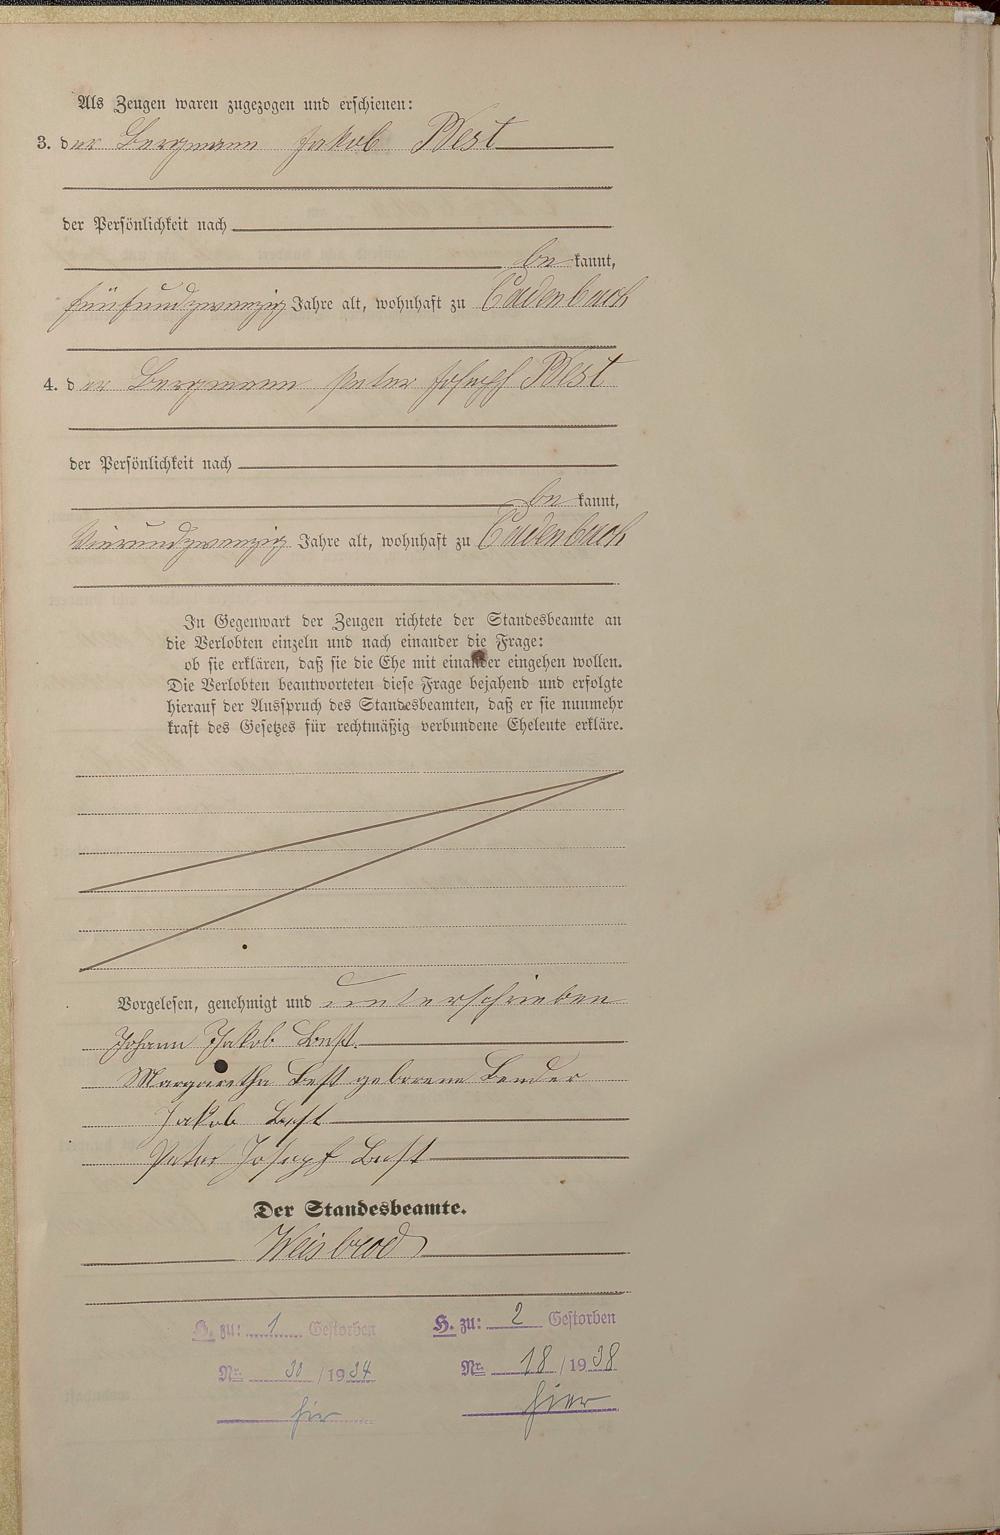 Als Zeugen waren zugezogen und erschienen:
3. der Bergmann Jakob Best
der Persönlichkeit nach
be kannt,
fünfundzwanzig Jahre alt, wohnhaft zu Cadenbach
4. der Bergmann Peter Joseph Best
der Persönlichkeit nach
be kannt,
vierundzwanzig Jahre alt, wohnhaft zu Cadenbach
In Gegenwart der Zeugen richtete der Standesbeamte an
die Verlobten einzeln und nach einander die Frage:
ob sie erklären, daß sie die Ehe mit einander eingehen wollen.
Die Verlobten beantworteten diese Frage bejahend und erfolgte
hierauf der Ausspruch des Standesbeamten, daß er sie nunmehr
kraft des Gesetzes für rechtmäßig verbundene Eheleute erkläre.
Vorgelesen, genehmigt und unterschrieben
Johann Jakob Best.
Margaretha Best geborene Bender
Jakob Best
Peter Joseph Best
Der Standesbeamte.
Weisbrod
H. zu: 1 Gestorben H. zu: 2 Gestorben
Nr. 30 /1934 Nr. 18 /1938
hier hier